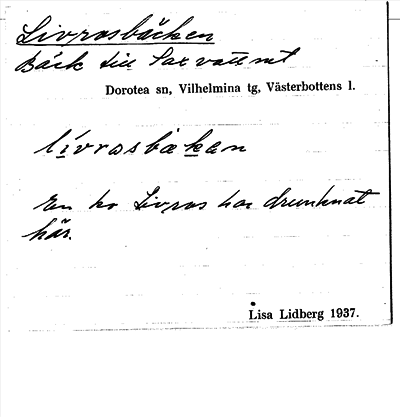 Livrosbäcken
Bäck till Saxvattnet
Dorotea sn, Vilhelmina tg, Västerbottens l.
lívrosbäkən
En ko Livros har drunknat
här.
Lisa Lidberg 1937.